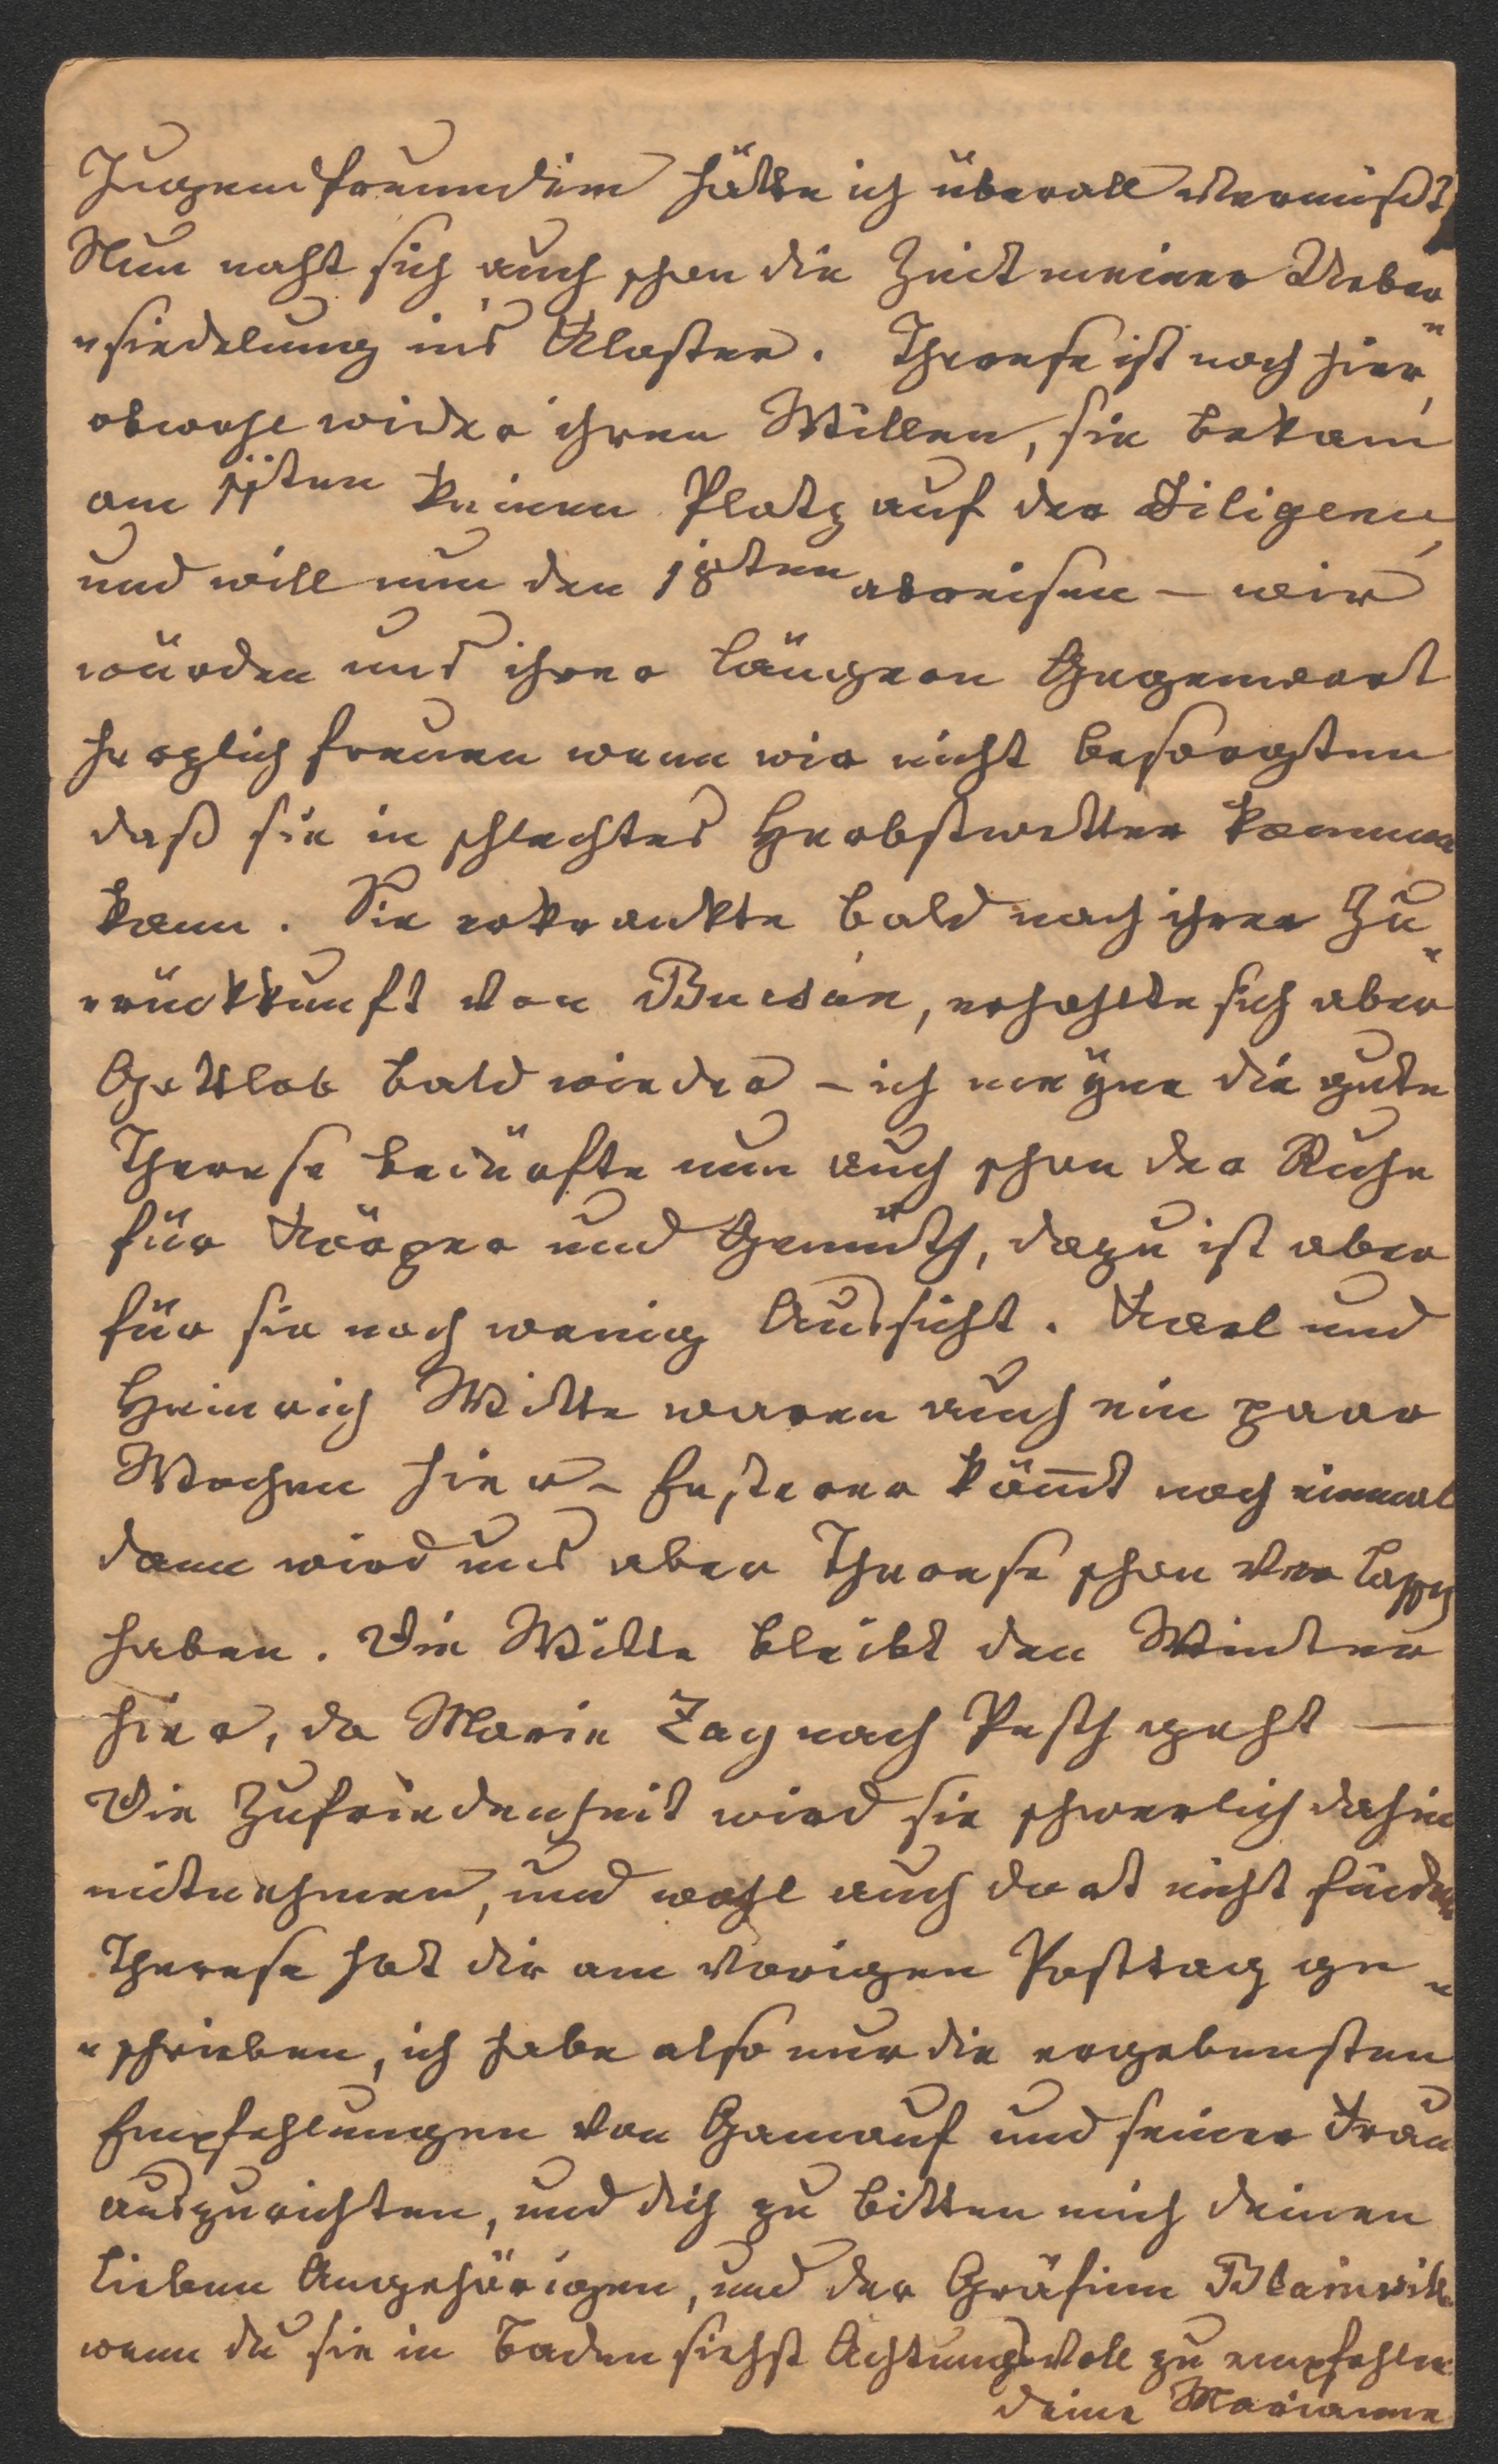 Jugendfreundinn hätte ich überall vermißt,
Nun naht sich auch schon die Zeit meiner Ueber„
„siedelung ins Kloster. Therese ist noch hier,
obwohl wider ihren Willen, sie bekam
am 11ten keinen Platz auf der Diligence,
und will nun den 18ten abreisen – wir
würden uns ihrer längern Gegenwart
herzlich freuen wenn wir nicht besorgten
daß sie in schlechtes Herbstwetter kommen
kann. Sie erkrankte bald nach ihrer Zu„
„rückkunft von Bucsán, erhohlte sich aber
Gottlob bald wieder – ich meyne die gute
Therese bedürfte nun auch schon der Ruhe
für Körper und Gemüth, dazu ist aber
für sie noch wenig Aussicht. Karl und
Heinrich Witte waren auch ein paar
Wochen hier – Ersterer köm̄t noch einmal
dann wird uns aber Therese schon verlassen
haben. Die Witte bleibt den Winter
hier, da Marie Zay nach Pesth geht —
Die Zufriedenheit wird sie schwerlich dahin
mitnehmen, und wohl auch dort nicht finden
Therese hat dir am vorigen Posttag ge„
„schrieben, ich habe also nur die ergebensten
Empfehlungen von Gamauf und seiner Frau
auszurichten, und dich zu bitten mich deinen
lieben Angehörigen, und der Gräfinn
wenn du sie in Baden siehst Achtungsvoll zu empfehlen
deine Marianne